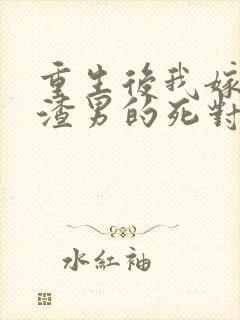 重生後我嫁
渣男的死對
水紅袖